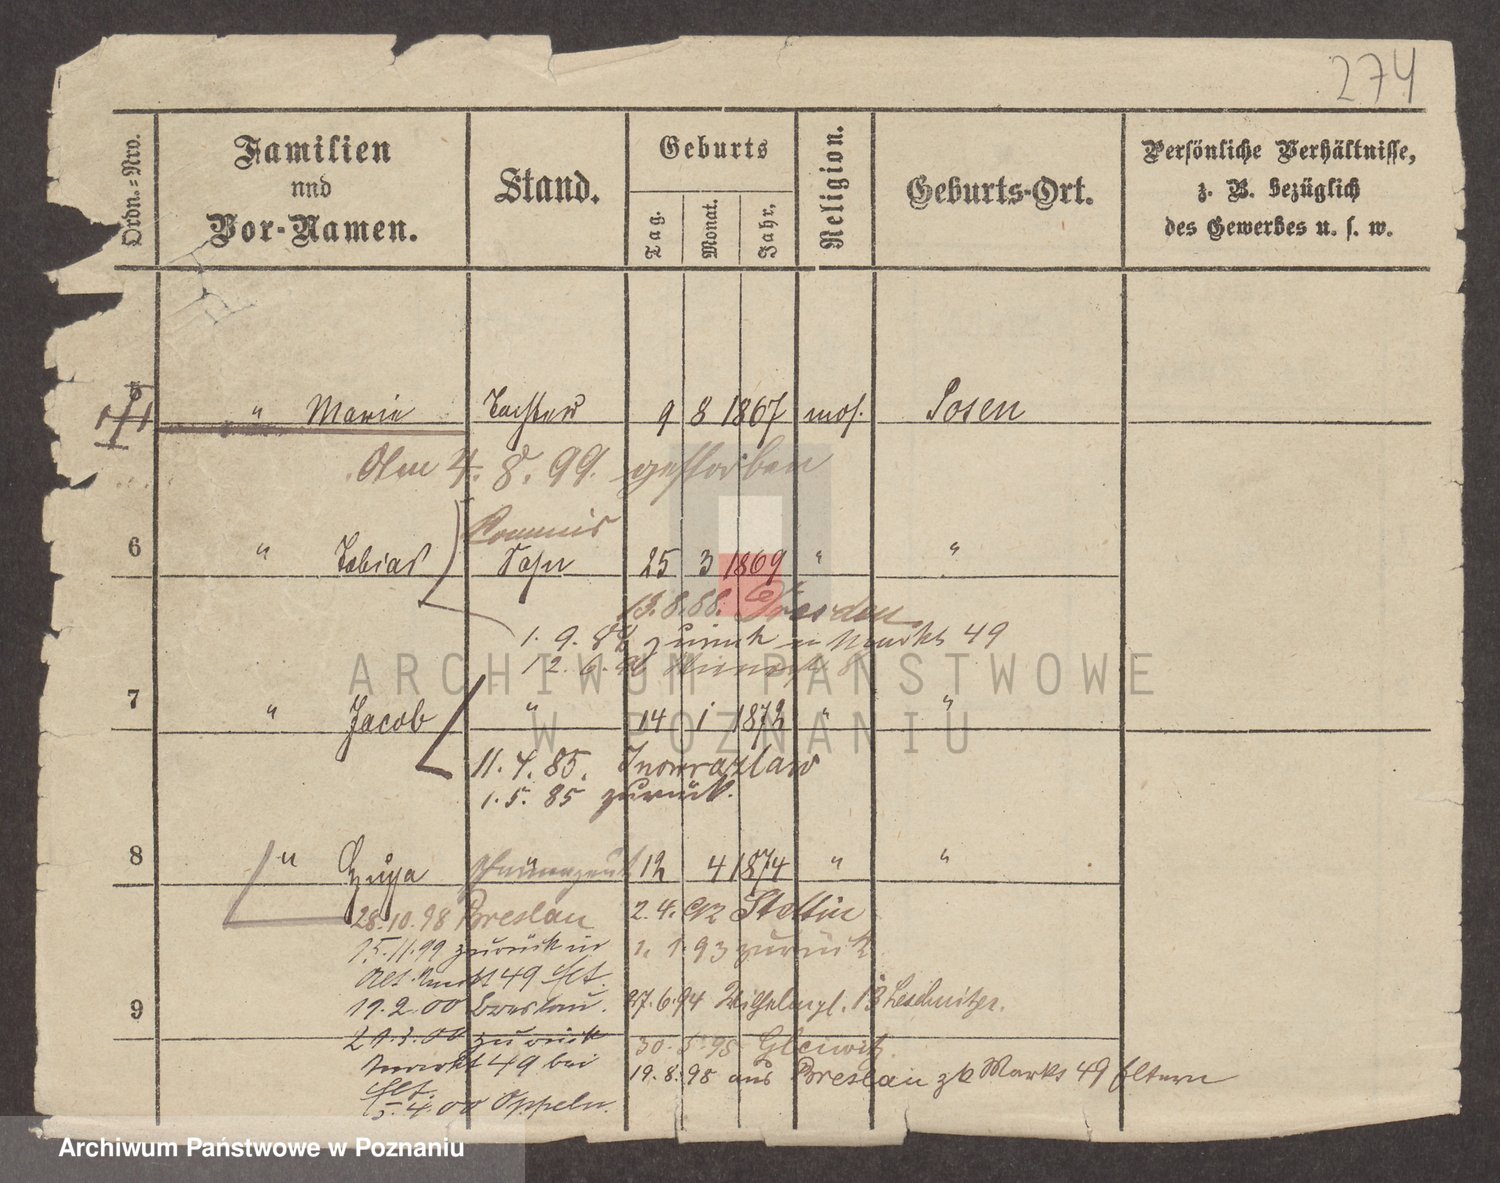 274
Ordn.-Nro.
Familien
und
Vor-Namen.
Stand.
Geburts
Tag.
Monat.
Jahr.
Religion.
Geburts-Ort.
Persönliche Verhältnisse,
z. B. bezüglich
des Gewerbes u. s. w.
5 " Marie Tochter 9 8 1867 mos. Posen
Am 4. 8. 99. gestorben
Commis
6 " Tobias Sohn 25 3 1869 " "
13. 8. 88. Dresden
1. 9. zurück Markt 49
12. 6.
7 " Jacob " 14 1 1872 " "
11. 4. 85. Inowrazlaw
1. 5. 85 zurück.
8 " 12 4 1874 " "
28. 10. 98 Breslau
2. 4. 92 Stettin
15. 11. 99 zurück in
1. 1. 93 zurück
Alt. Markt 49 Elt.
19. 2. 00 Breslau.
27. 6. 94 Wilhelmpl. 13
9
21. 3. 00 zurück
30. 5. 95 Gleiwitz.
Markt 49 bei
19. 8. 95 aus Breslau Markt 49 Eltern
Elt.
5. 4. 00 Oppeln.
ARCHIWUM PAŃSTWOWE
W POZNANIU
Archiwum Państwowe w Poznaniu